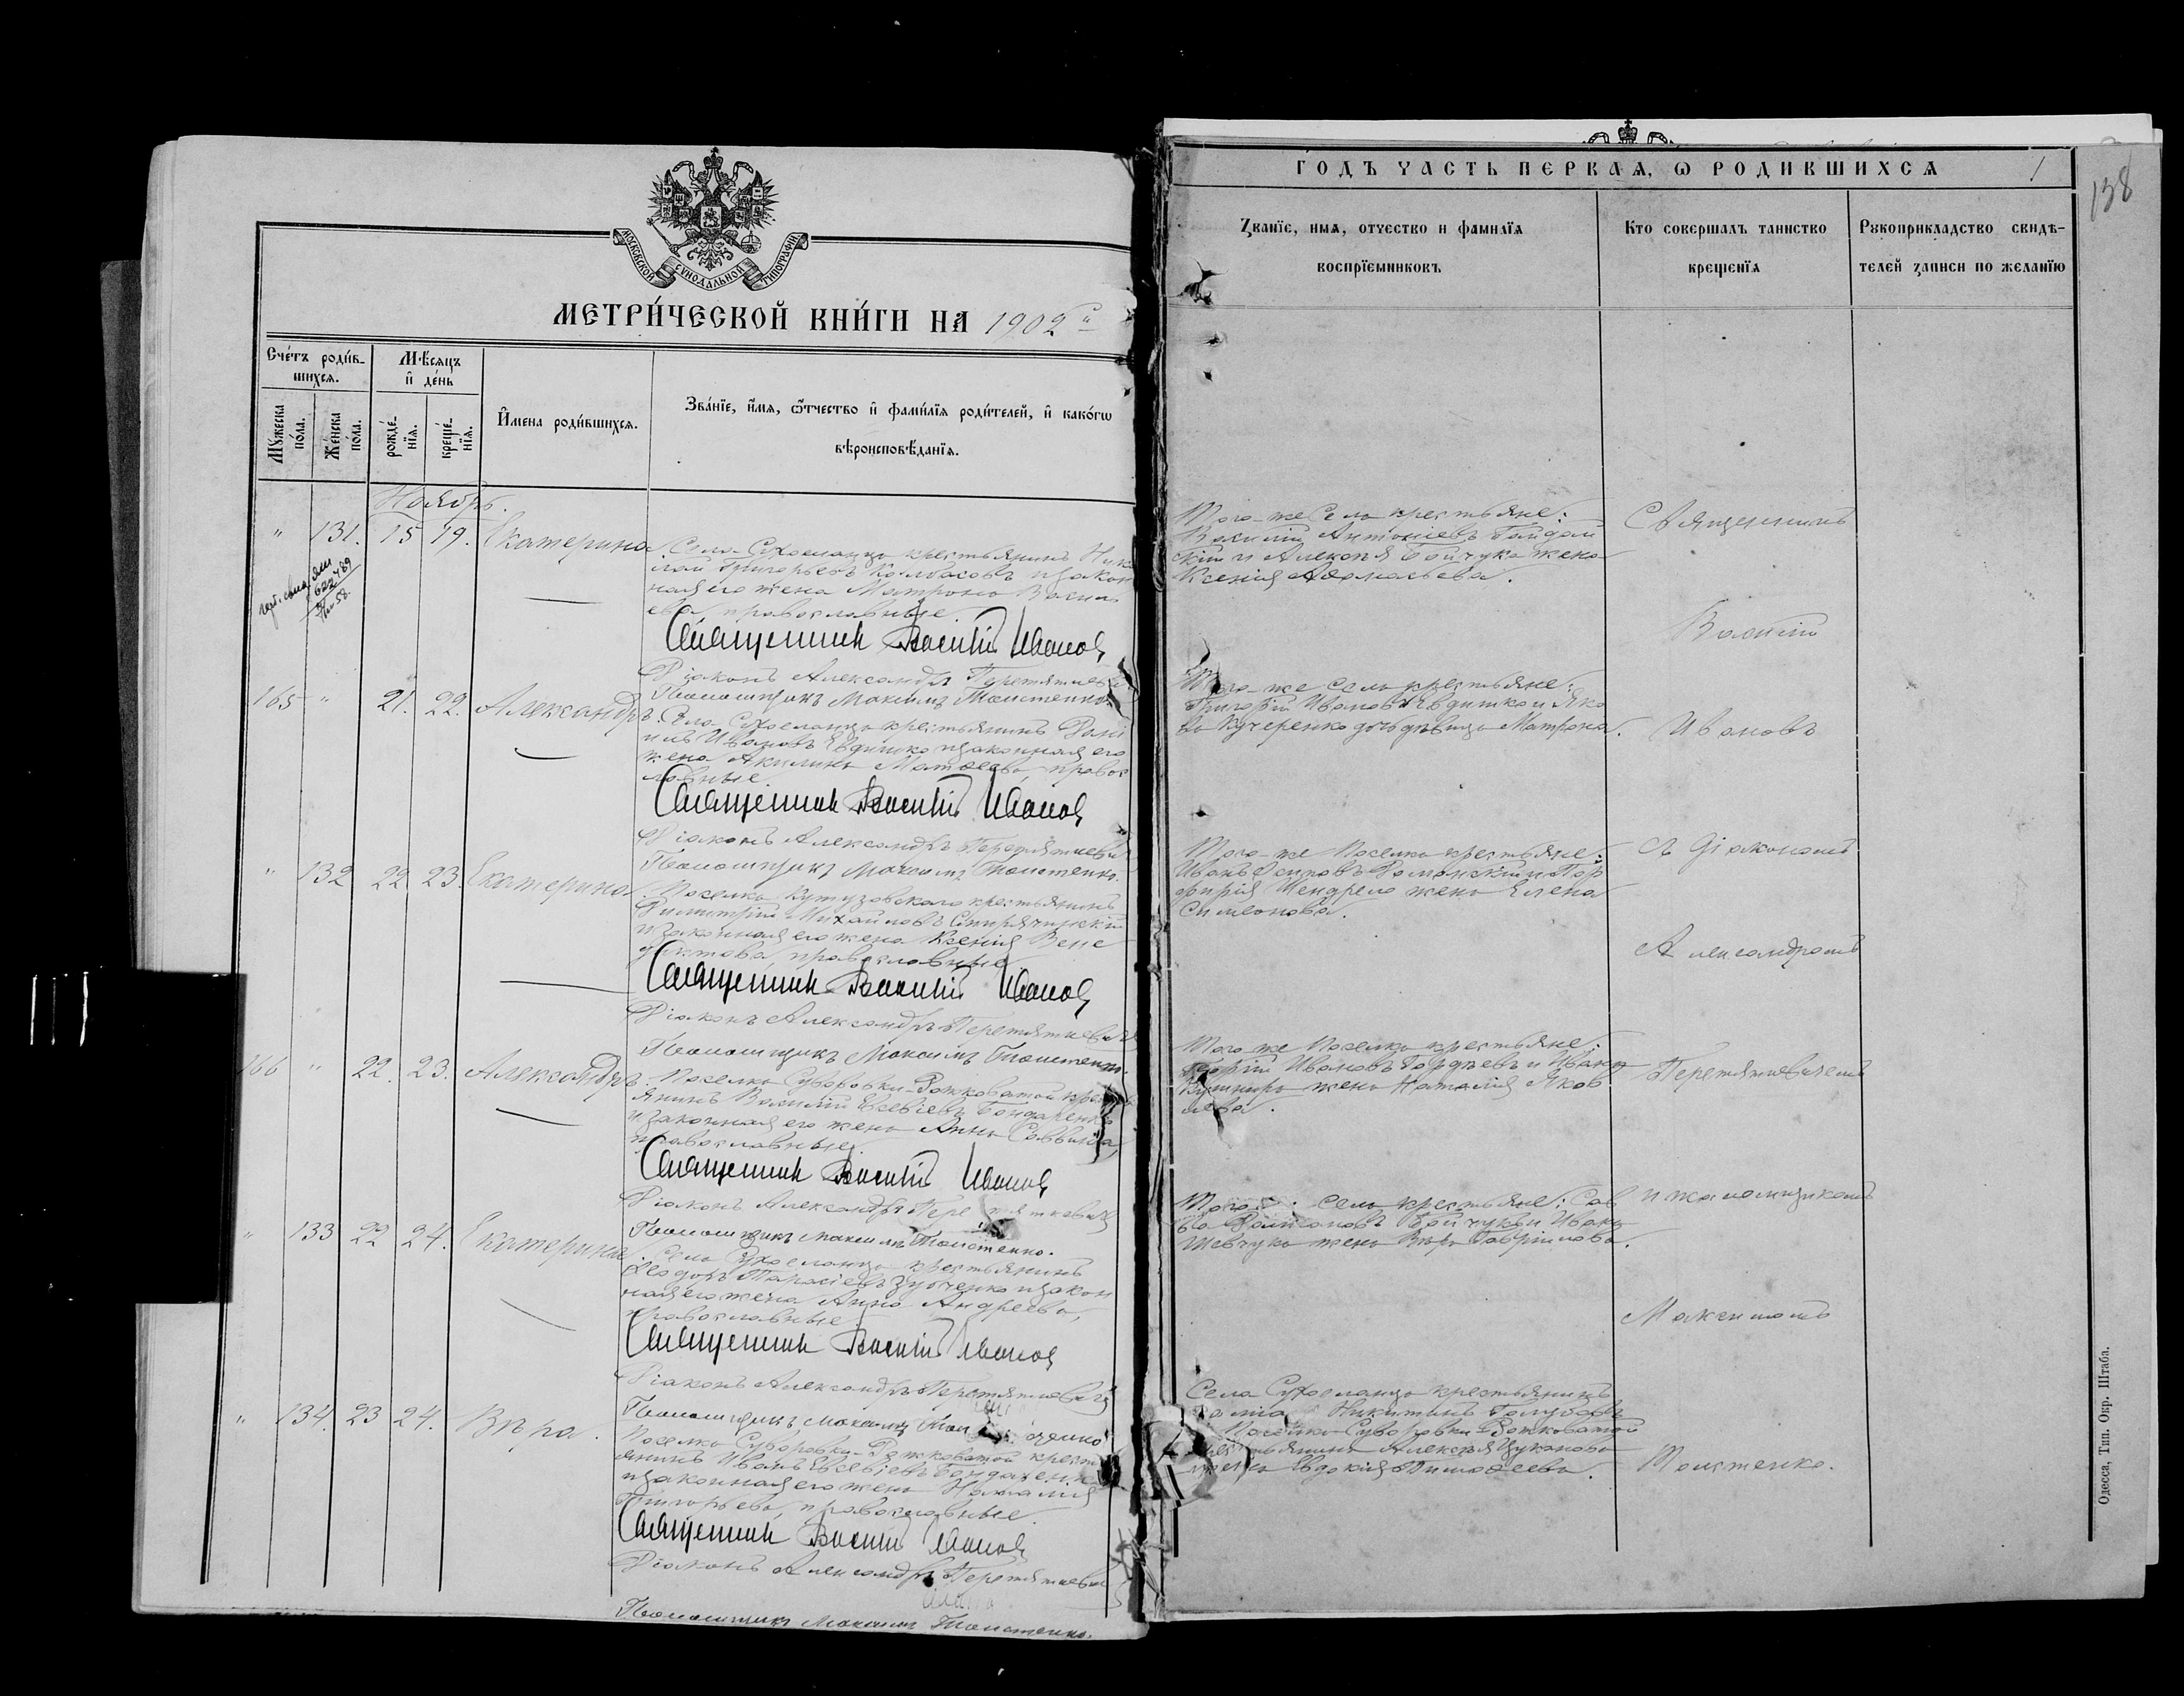 МОСКОВСКОЙ СѴНОДАЛЬНОЙ ТИПОГРАФІИ
МЕТРИ́ЧЕСКОЙ КНИ́ГИ НА 1902 й
Сче́тъ роди́в-
шихся.
Мѣ́сяцъ
и҆ де́нь
Мꙋ́жеска
по́ла.
Же́нска
по́ла.
рожде́-
нїѧ.
креще́-
нїѧ.
И҆мена роди́вшихсѧ.
Зва́нїе, и҆́мѧ, ѻ҆́тчество и҆ фами́лїѧ роди́телей, и҆ како́гѡ
вѣроисповѣ́данїѧ.
Ноябрь.
" 131. 15 19. Екатерина
Села Сухоеланца крестьянинъ Ник
лай Григорьевъ Колбасовъ и закон
ная его жена Матрона Васил
ева, православные.
Священник Василій Иванов
Діаконъ Александръ Перетяткевич
Псаломщикъ Максимъ Толстенко.
165 " 21. 22. Александръ.
Села Сухоеланца крестьянинъ Дані
илъ Ивановъ Евдишко и законная его
жена Акилина Матѳеева, правос
лавные
Священник Василій Иванов
Діаконъ Александръ Перетяткевич
Псаломщикъ Максимъ Толстенко.
" 132 22 23. Екатерина
Поселка Кутузовскаго крестьянинъ
Димитрій Михайловъ
и законная его жена Ксенія Вене
диктова, православные
Священник Василій Иванов
Діаконъ Александръ Перетяткевич
Псаломщикъ Максимъ Толстенко.
166 " 22. 23. Александръ.
Поселка Суворовки-Рожковатой крест
янинъ Василій Евсевіевъ Бондаренко
и законная его жена Анна Саввина
православные.
Священник Василій Иванов
Діаконъ Александръ Перетяткевич
Псаломщикъ Максимъ Толстенко.
" 133 22 24. Екатерина.
Села Сухоеланца крестьянинъ
Ѳеодоръ Тарасіевъ Зубченко и закон
ная его жена Анна Андреева,
православные
Священник Василій Иванов
Діаконъ Александръ Перетяткевич
Псаломщикъ Максимъ Толстенко
" 134. 23 24. Вѣра.
Поселка Суворовки-Рожковатой крест
янинъ Иванъ Евсевіевъ Бондаренко
и законная его жена Наталія
Григорьева, православные.
Священник Василій Иванов
Діаконъ Александръ Перетяткевич
Псаломщикъ Максимъ Толстенко.
ГОДЪ ЧАСТЬ ПЕРВАѦ, Ѡ РОДИВШИХСѦ
1
138
Званїе, имѧ, отчество и фамилїѧ
воспрїемниковъ
Кто совершалъ таинство
крещенїѧ
Рꙋкоприкладство свидѣ-
телей записи по желанїю
Того-же Села крестьяне:
Василій Антоніевъ Байдай
скій и Алексѣя Бойчука жена
Ксенія Аѳанасьева.
Того-же села крестьяне:
Григорій Ивановъ Евдишко и Яко
ва Кучеренко дочь дѣвица Матрона.
Того-же Поселка крестьяне:
Иванъ Романскій и Пор
фирія Шендрело жена Елена
Симеонова.
Того же Поселка крестьяне:
Георгій Ивановъ Гордѣевъ и Ивана
Кушнира жена Наталія Яков
лева.
села крестьяне: Сав
ва Бойчукъ и Ивана
Шевчука жена Вѣра Гавріилова.
Села Сухоеланца крестьянинъ
Никитинъ Голубовъ
и Поселка Суворовки-Рожковатой
крестьянина Алексѣя Цуканова
жена Евдокія Тимоѳеева.
Священникъ
Василій
Ивановъ
съ Діакономъ
Александромъ
Перетяткевичемъ
и псаломщикомъ
Максимомъ
Толстенко.
Одесса, Тип. Окр. Штаба.